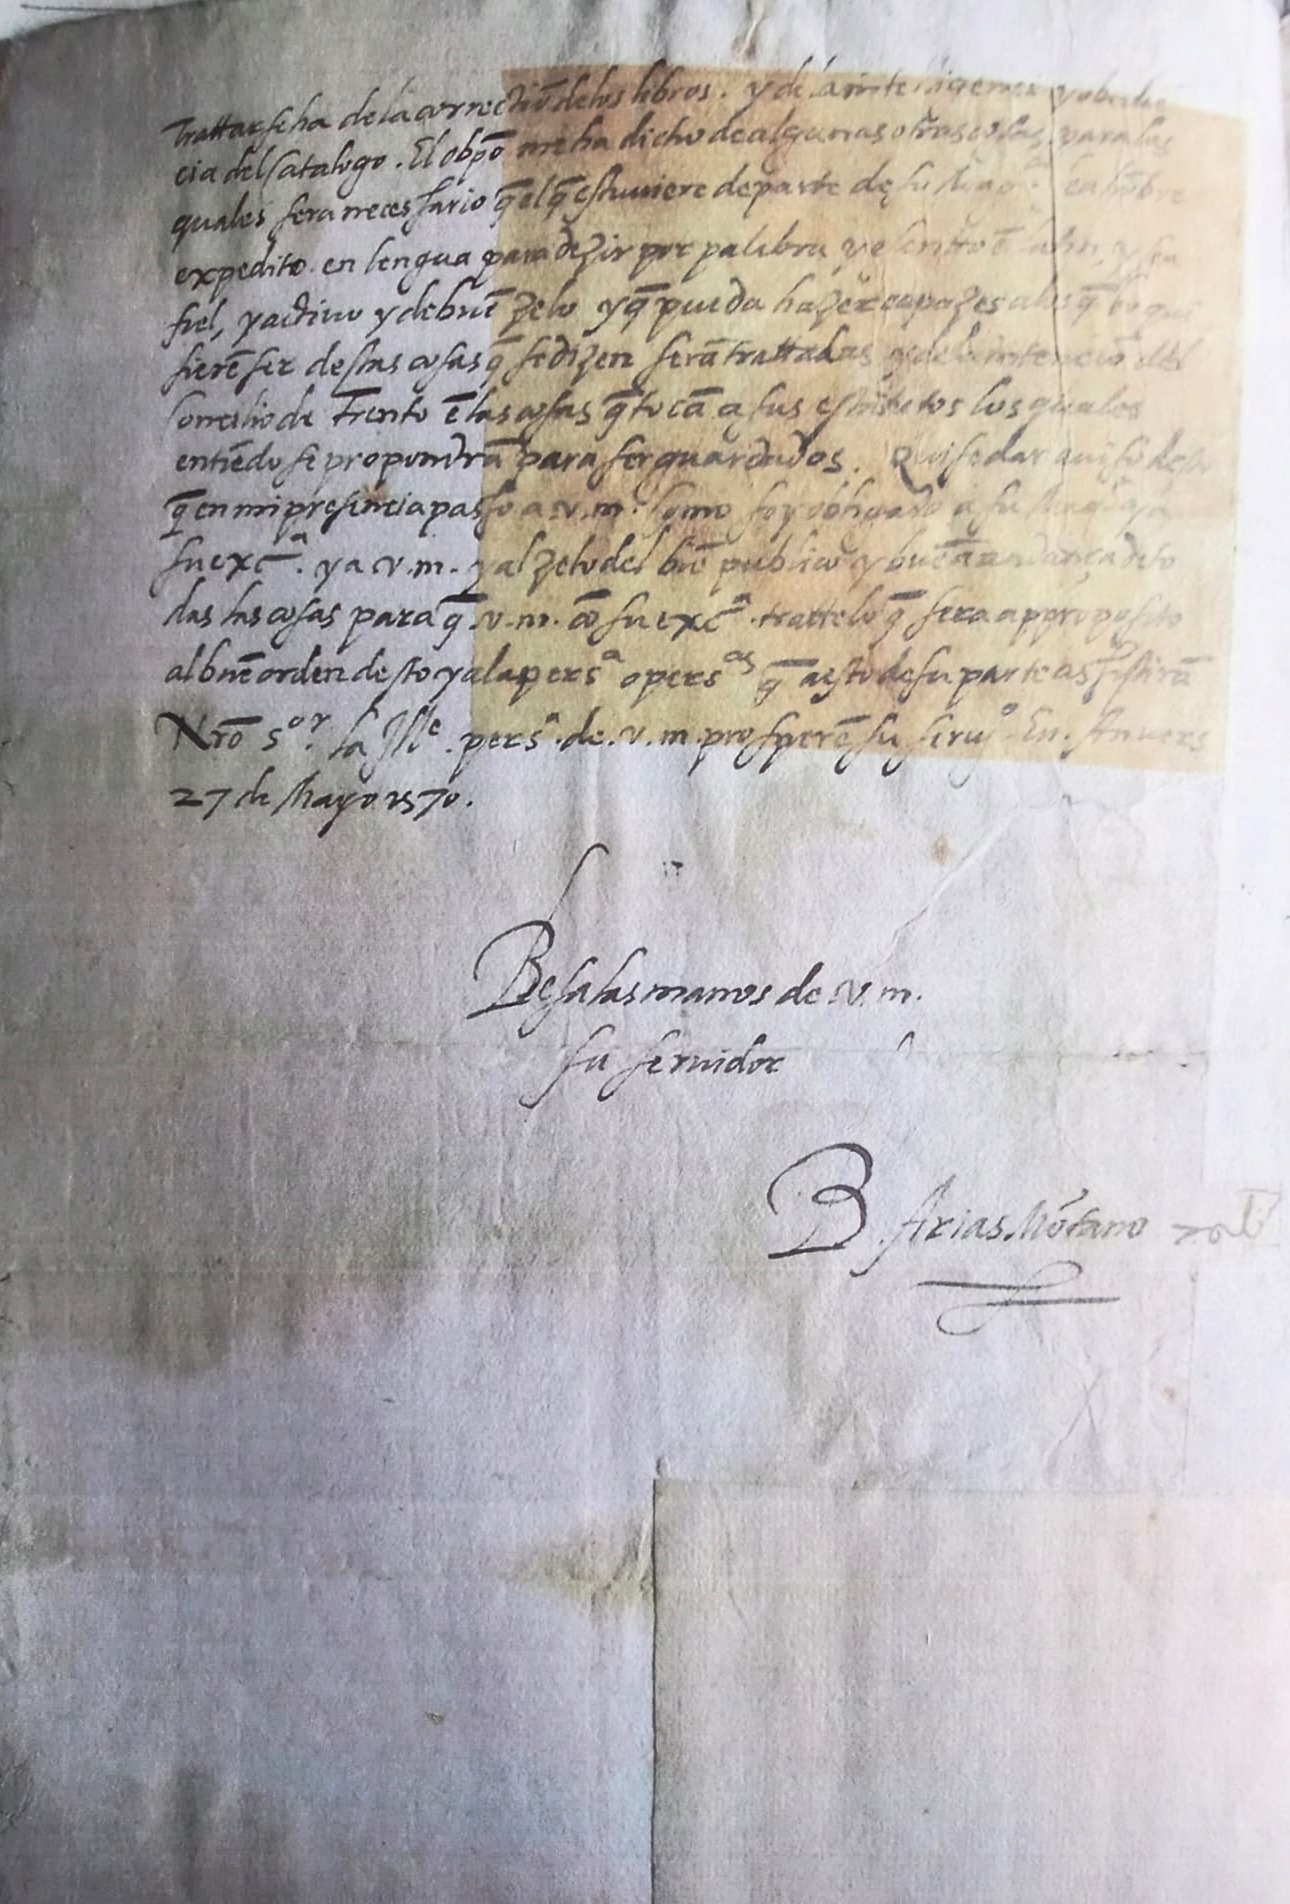 Trattarse ha de la correctiō de los libros. y de la intelligencia y obediē
cia del Catalogo. El obpō me ha dicho de algunas otras cosas, para las
quales sera necessario q̄ el q̄ estuuiere de parte de su Mag.ᵈ sea hōbre
expedito en lengua para dezir por palabra y escritto ē latin, y sea
fiel, y actiuo y de buē zelo y q̄ pueda hazer capazes a los q̄ lo qui
sierē ser destas cosas q̄ se dizen serā trattadas y de la intenciō del
Concilio de Trento ē las cosas q̄ tocā a sus estatutos los quales
entiēdo se propondrā para ser guardados. Quise dar auiso desto
q̄ en mi presencia passo a v.m. como soy obligado a su Mag.ᵈ y a
su exc.ᵃ y a v.m. y al zelo del biē publico y buēa andança de to
das las cosas para q̄ v.m. cō su exc.ᵃ tratte lo q̄ sera a pproposito
al buē orden desto y a la persᵃ o persᵃˢ q̄ a esto de su parte assistirā
Nrō Sᵒʳ. la Illᵉ. persᵃ. de. v.m. prosperē su seruᵒ. En. Anuers
27 de Mayo 1570.
Besa las manos de v.m.
su seruidor
B. Arias Mōtano